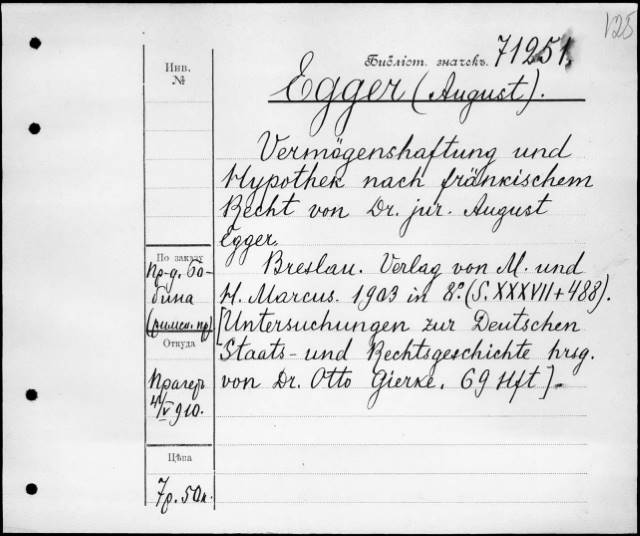 125
Библіот. значекъ. 71251.
Инв.
№
Egger (August).
Vermögenshaftung und
Hypothek nach fränkischem
Recht von Dr. jur. August
Egger.
Breslau. Verlag von M. und
H. Marcus. 1903 in 8º. (S. XXXVII + 488).
[Untersuchungen zur Deutschen
Staats- und Rechtsgeschichte hrsg.
von Dr. Otto Gierke. 69 Hft].
По заказу
Пр-д. Бо-
бина
(римск. пр)
Откуда
Прагеръ
4/V 910.
Цѣна
7р. 50к.